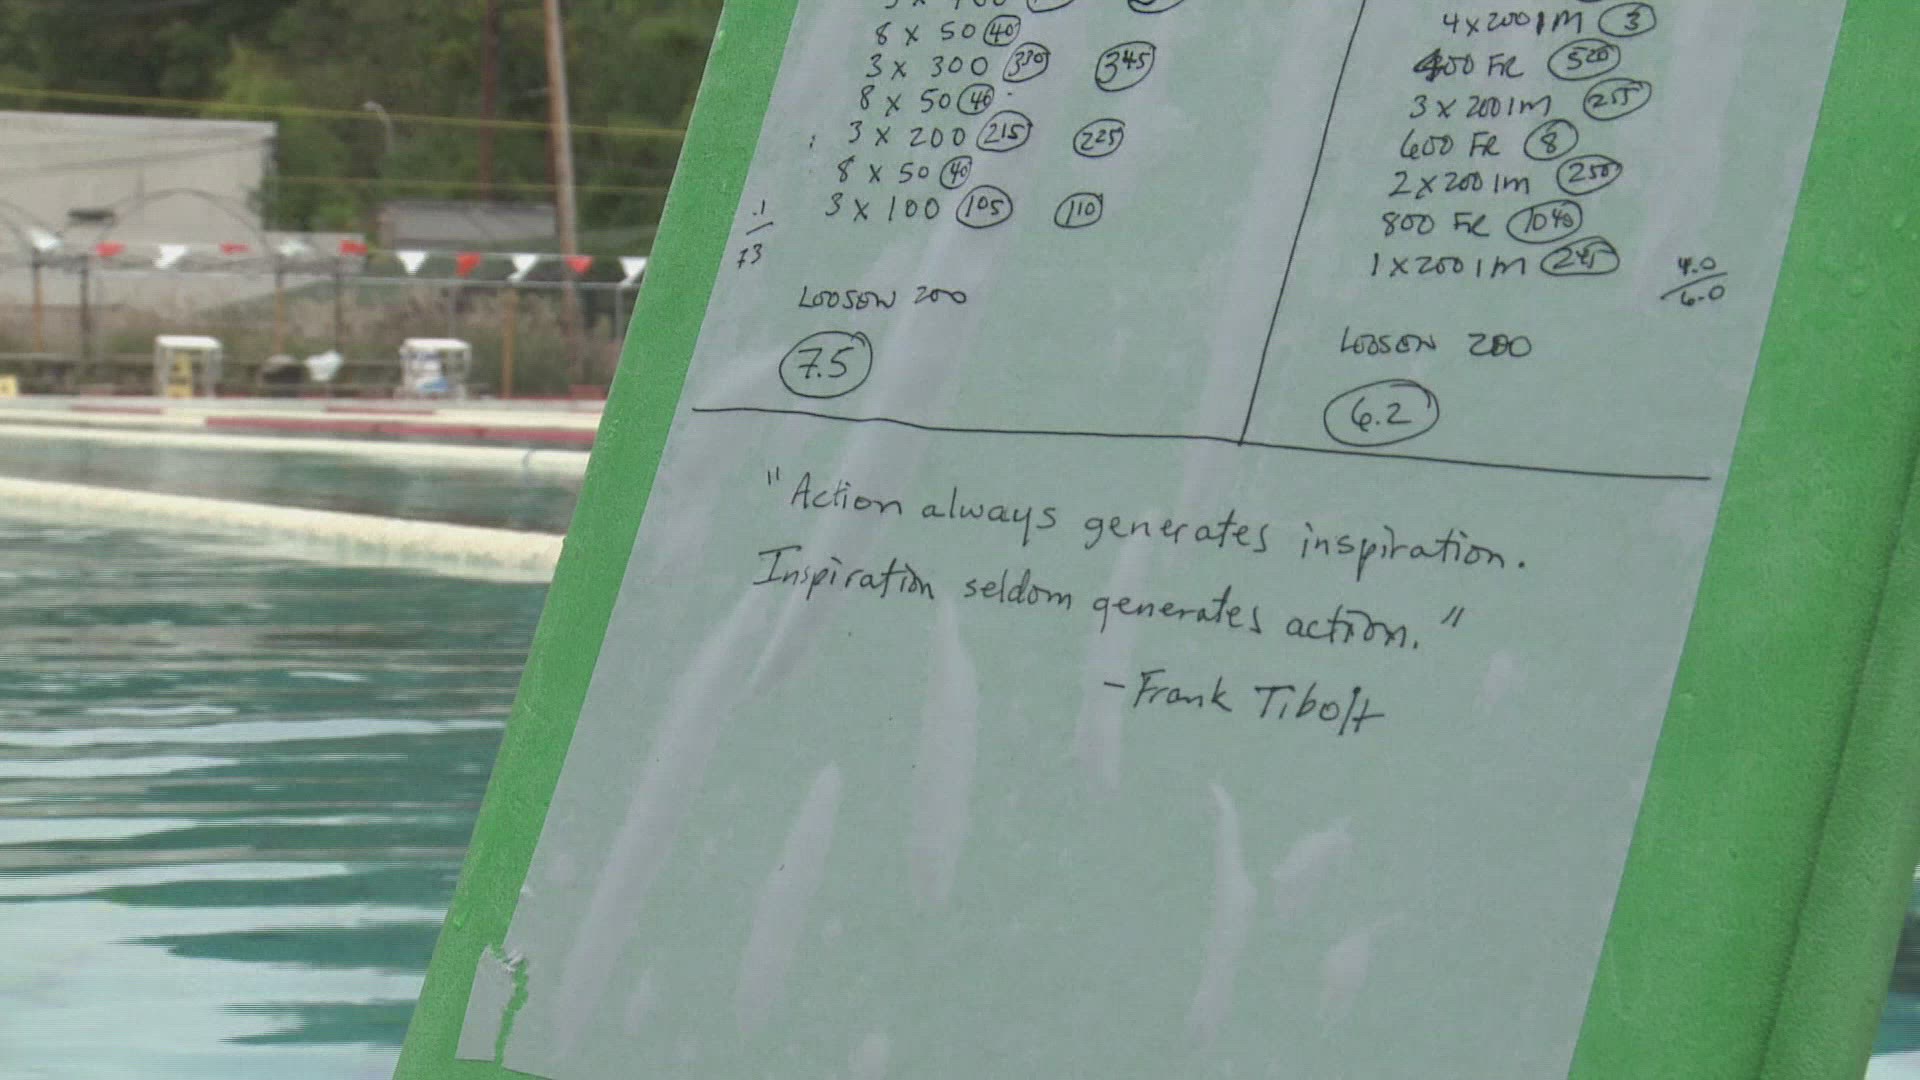 8 x 50 40
3 x 300 330 345
8 x 50 40
3 x 200 215 225
8 x 50 40
3 x 100 105 110
.1
73
LOOSEN 200
7.5
4 x 200 IM 3
400 FR 520
3 x 200 IM 255
600 FR 8
2 x 200 IM 250
800 FR 1040
1 x 200 IM 245
4.0
6.0
LOOSEN 200
6.2
"Action always generates inspiration.
Inspiration seldom generates action."
- Frank Tibolt